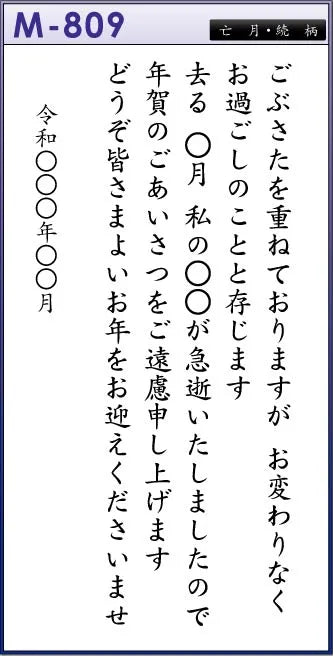 M-809
亡　月・続　柄
ごぶさたを重ねておりますが　お変わりなく
お過ごしのことと存じます
去る　〇月　私の〇〇が急逝いたしましたので
年賀のごあいさつをご遠慮申し上げます
どうぞ皆さまよいお年をお迎えくださいませ
令和〇〇〇年〇〇月